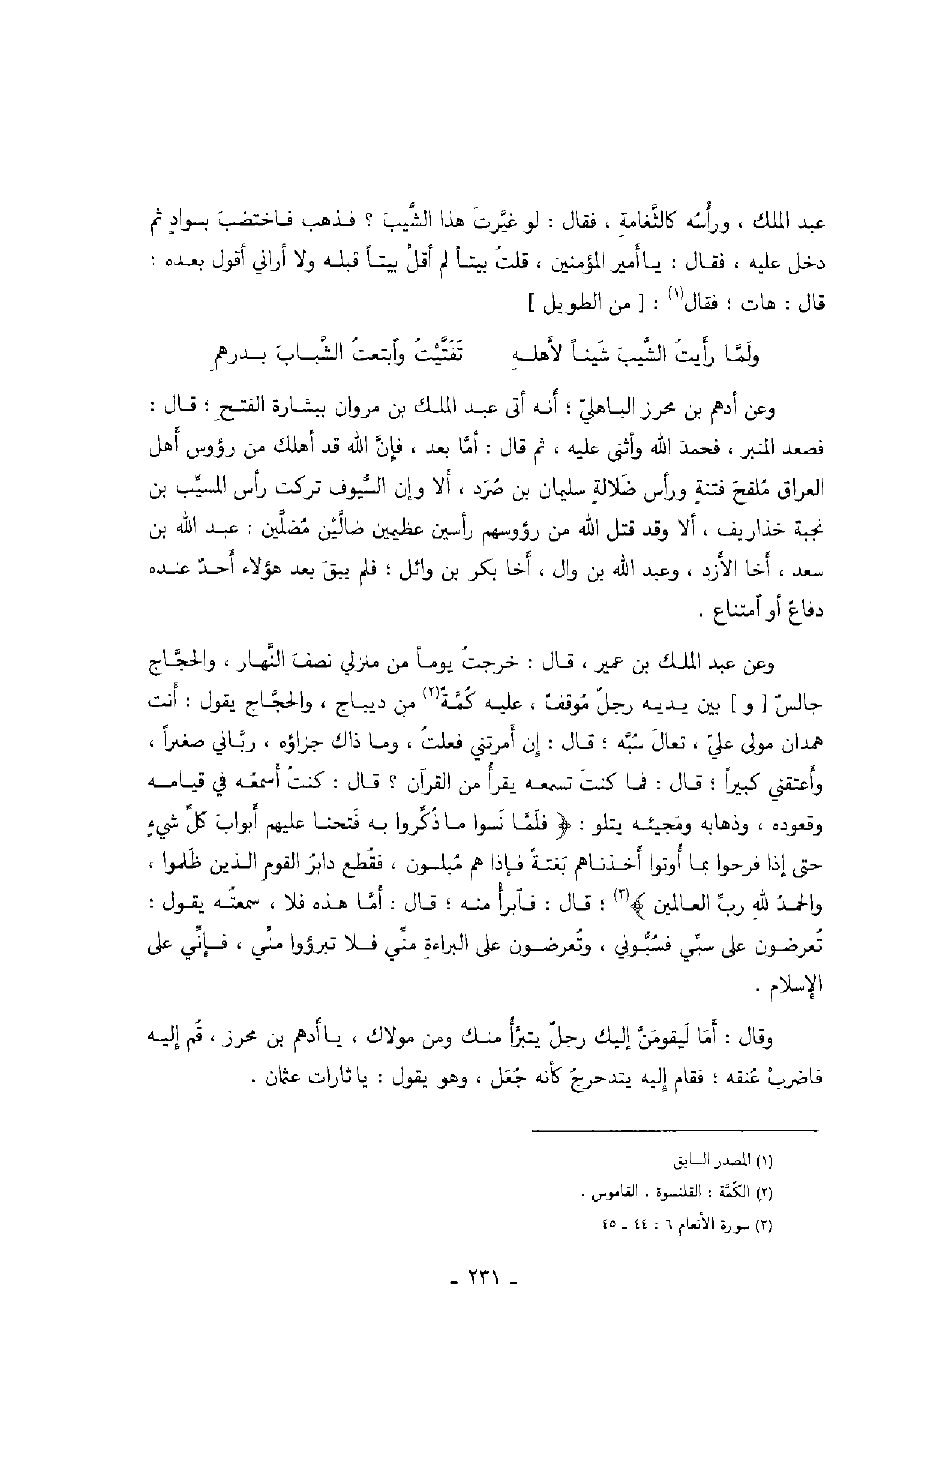 عبد الملك ، ورأْسُه كالثَّغامةِ ، فقال : لو غيَّرتَ هذا الشَّيبَ ؟ فـذهب فـاختضبَ بـوادٍ ثم
دخل عليه ، فقـال : يـاأمير المؤمنين ، قلتُ بيتـاً لم أقلْ بيتـاً قبلـه ولا أراني أقول بعـده :
قال : هات ؛ فقال(١) : [ من الطويل ]
ولَمّا رأيتُ الشَّيبَ شَيناً لأهلـهِ    تَفَتَّيْتُ وآبتعتُ الشَّبـابَ بـدرهمِ
وعن أدهم بن محرز البـاهليّ ؛ أنـه أتى عبـد الملـك بن مروان ببشـارة الفتـح ؛ قـال :
فصعد المنبر ، فحمدَ الله وأثنى عليه ، ثم قال : أمّا بعد ، فإنَّ الله قد أهلك من رؤوس أهل
العراق مُلقحَ فتنةٍ ورأس ضَلالةٍ سليمان بن صُرَد ، ألا وإن السُّيوف تركت رأس المسيَّب بن
نجبة خذاريف ، ألا وقد قتل الله من رؤوسهم رأسين عظيمين ضالَّيْن مُضلَّين : عبـد الله بن
سعد ، أخا الأزد ، وعبد الله بن وال ، أخا بكر بن وائل ؛ فلم يبقَ بعد هؤلاء أحدٌ عنـده
دفاعٌ أو آمتناع .
وعن عبد الملـك بن عمير ، قـال : خرجتُ يومـاً من منزلي نصفَ النَّهـار ، والحجَّـاج
جالسٌ [ و ] بين يـديـه رجلٌ مُوقفٌ ، عليـه كُمَّةٌ(٢) من ديبـاج ، والحجَّـاج يقول : أنت
همدان مولى عليّ ، تعالَ سُبَّه ؛ قـال : إن أمرتني فعلتُ ، ومـا ذاك جزاؤه ، ربَّـاني صغيراً ،
وأعتقني كبيراً ؛ قـال : فمـا كنتَ تسمعـه يقرأ من القرآن ؟ قـال : كنتُ أسمعُـه في قيـامـه
وقعوده ، وذهابه ومَجيئـه يتلو : ﴿ فلَمَّا نَسوا مـا ذُكِّروا بـه فَتحنـا عليهم أبوابَ كلِّ شيءٍ
حتى إذا فرحوا بما أُوتوا أخـذنـاهم بَغتـةً فـإذا هم مُبلسون ، فقُطع دابرُ القوم الـذين ظلموا ،
والحمدُ للهِ ربِّ العـالمين ﴾(٣) ؛ قـال : فـآبرأْ منـه ؛ قـال : أمّا هـذه فلا ، سمعتُـه يقول :
تُعرضـون على سبّي فسُبُّوني ، وتُعرضـون على البراءةِ منّي فـلا تبرؤوا منّي ، فـإنّي على
الإسلام .
وقال : أمَا لَيقومَنَّ إليك رجلٌ يتبرَّأ منـك ومن مولاك ، يـاأدهم بن محرز ، قُم إليـه
فاضربْ عُنقه ؛ فقام إليه يتدحرجُ كأنه جُعَل ، وهو يقول : يا ثارات عثمان .
(١) المصدر السـابق
(٢) الكُمَّة : القلنسوة . القاموس .
(٣) سورة الأنعام ٦ : ٤٤ ـ ٤٥
ـ ٢٣١ ـ